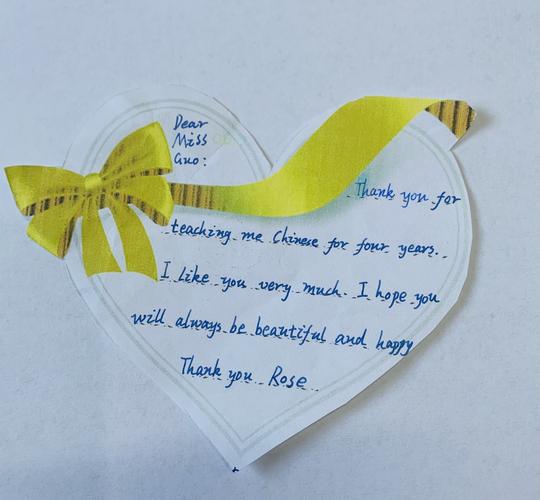 Dear
Miss
Guo:
Thank you for
teaching me Chinese for four years.
I Like you very much. I hope you
will always be beautiful and happy
Thank you Rose